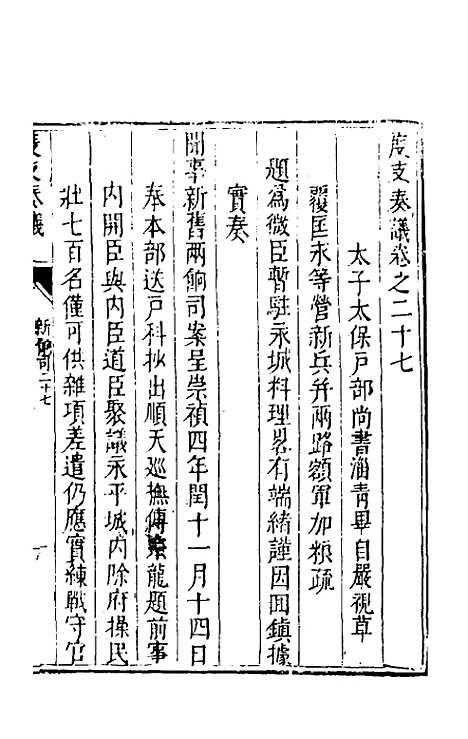 度支奏議卷之二十七
太子太保戶部尚書淄青畢自嚴視草
覆匡永等營新兵并兩路額軍加粮疏
題爲微臣暫駐永城料理畧有端緒謹因回鎮據
實奏
聞事新舊兩餉司案呈崇禎四年閏十一月十四日
奉本部送戶科抄出順天巡撫傅宗龍題前事
內開臣與內臣道臣聚議永平城內除府操民
壯七百名僅可供雜項差遣仍應實練戰守官
度支奏議
新餉司二十七